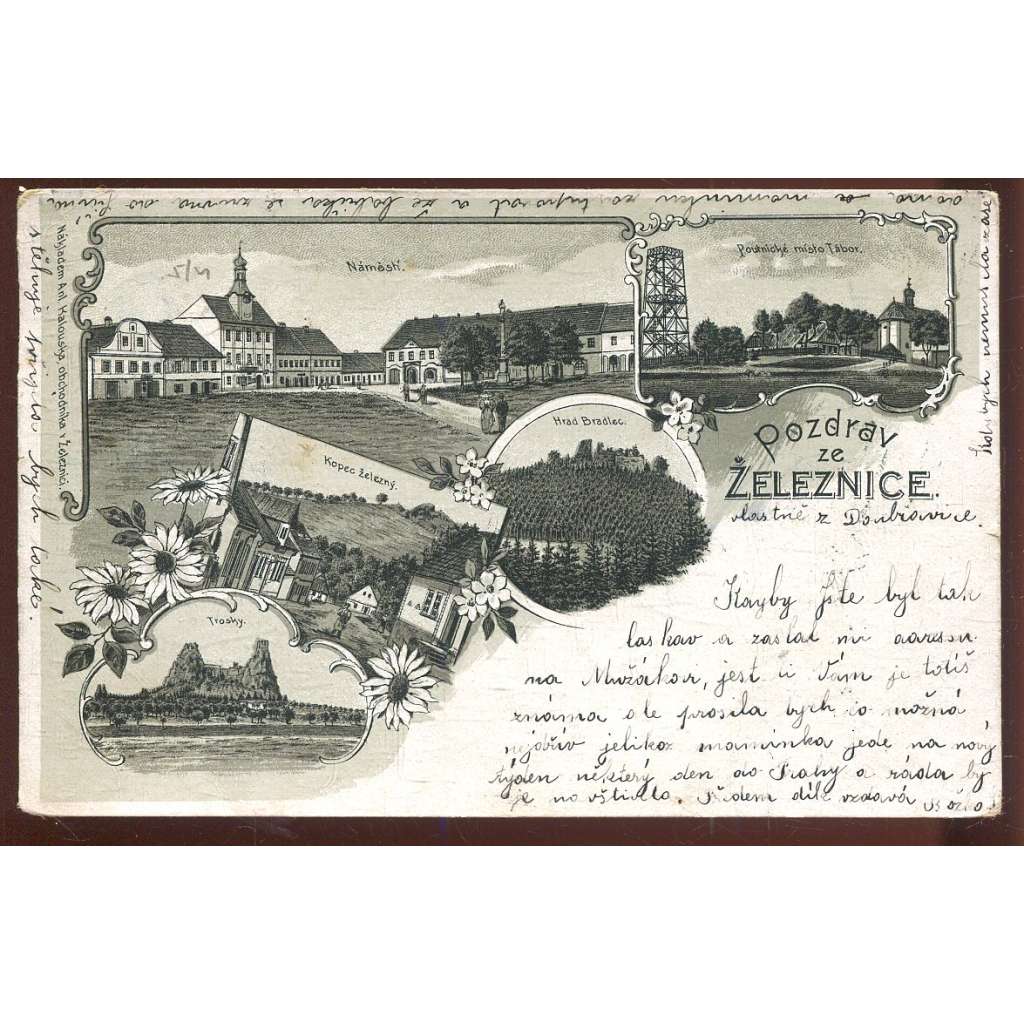 Náměstí.
Poutnické místo Tábor.
Hrad Bradlec.
Kopec železný.
Trosky.
Pozdrav
ze
ŽELEZNICE.
Nákladem Ant. Kalouska, obchodníka v Železnici.
vlastně z Doubravice.
Kdyby jste byl tak
laskav a zaslal mi adresu
na Mužákovi, jest i Vám je totiž
známa ale prosila bych co možná
nejdřív jelikož maminka jede na nový
týden některý den do Prahy a ráda by
je navštívila. Předem dík vzdává
doma a maminku zastupovat a že babička se zrovna do
stěhuje bych také.
Kdybych nemusela zase